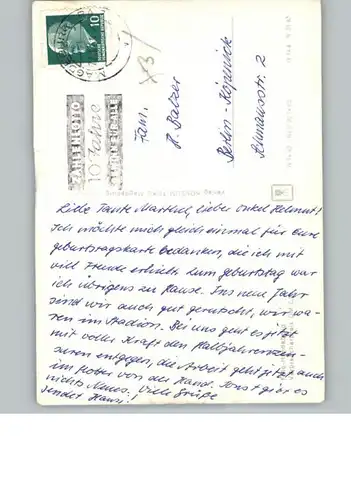 10
10 Jahre
Fam.
H. Balzer
Berlin-Köpenick
Liebe Tante Marthel, lieber Onkel Helmut!
Ich möchte mich gleich einmal für Eure
Geburtstagskarte bedanken, die ich mit
viel Freude erhielt. Zum Geburtstag war
ich übrigens zu Hause. Ins neue Jahr
sind wir auch gut gerutscht, wir wa-
ren im Stadion. Bei uns geht es jetzt
mit voller Kraft den Halbjahreszen-
suren entgegen, die Arbeit geht jetzt auch
im flotter von der Hand. Sonst gibt es
nichts Neues. Viele Grüße
sendet Hansi!